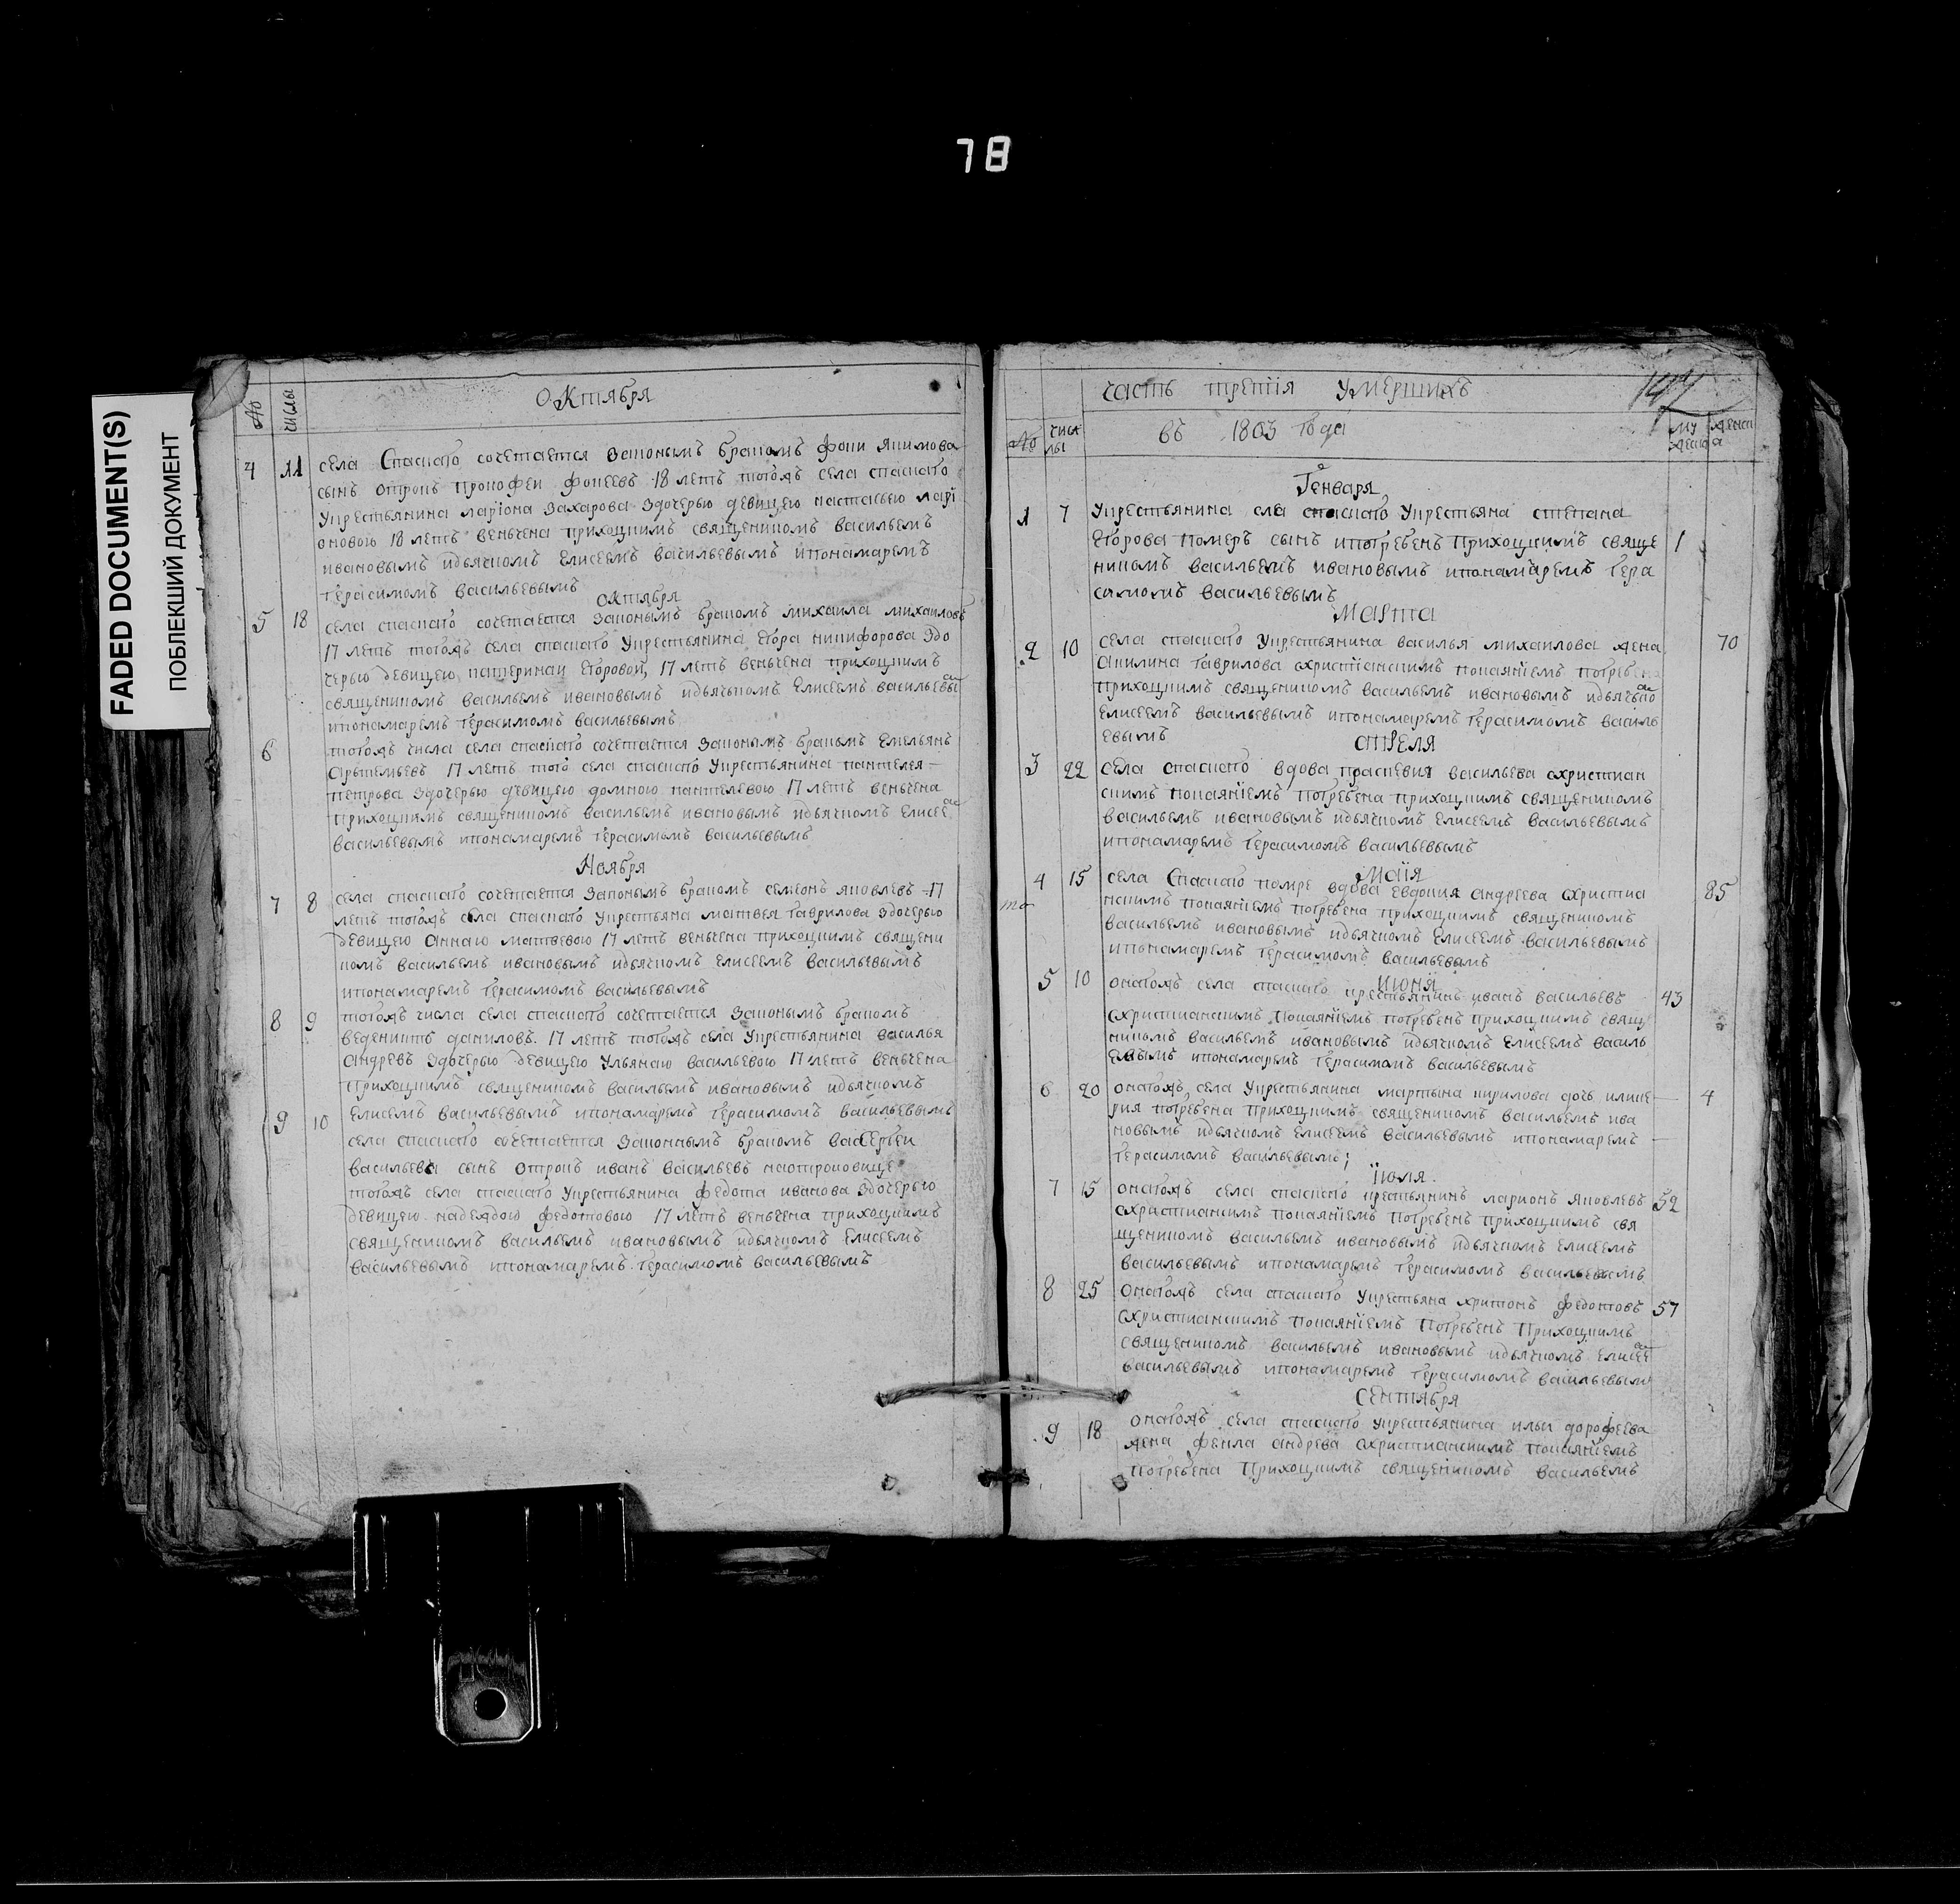 78
FADED DOCUMENT(S)
ПОБЛЕКШИЙ ДОКУМЕНТ
№ числы Октября
4 11 села Спаскаго сочетается законымъ бракомъ фоки якимова
сынъ отрокъ прокофеи фокеевъ 18 летъ тогожъ села спаскаго
укрестьянина ларiона захарова здочерью девицею настасьею ларi
оновою 18 летъ веньчена приходцкимъ священикомъ васильемъ
ивановымъ идьячкомъ Елисеемъ васильевымъ ипонамаремъ
герасимомъ васильевымъ
октября
5 18 села спаскаго сочетается законымъ бракомъ михаила михаиловъ
17 летъ тогожъ села спаскаго укрестьянина Егора никифорова здо
черью девицею катеринаи Егоровой, 17 летъ веньчена приходцкимъ
священикомъ васильемъ ивановымъ идьячькомъ Елисеемъ васильевы
ипонамаремъ герасимомъ васильевымъ
6 тогожъ числа села спаскаго сочетается законымъ бракомъ Емельянъ
Арьтемьевъ 17 летъ того села спаскаго укрестьянина пантелея
петрова здочерью девицею домною пантелевою 17 летъ веньчена
приходцкимъ священикомъ васильемъ ивановымъ идьячкомъ Елисее
васильевымъ ипонамаремъ герасимомъ васильевымъ
Ноября
7 8 села спаскаго сочетается законымъ бракомъ семенъ яковлевъ 17
летъ тогожъ села спаскаго укрестьяна матвея гаврилова здочерью
девицею Аннаю матвевою 17 летъ веньчена приходцкимъ священи
комъ васильемъ ивановымъ идьячкомъ Елисеемъ васильевымъ
ипонамаремъ герасимомъ васильевымъ
8 9 тогожъ числа села спаскаго сочетается законымъ бракомъ
веденихтъ даниловъ. 17 летъ тогожъ села укрестьянина василья
Андревъ здочерью девицею Ульянаю васильевою 17 летъ веньчена
приходцкимъ священикомъ васильемъ ивановымъ идьячкомъ
9 10 Елисемъ васильевымъ ипонамаремъ герасимомъ васильевымъ
села спаскаго сочетается законнымъ бракомъ
васильева сынъ отрокъ иванъ васильевъ
тогожъ села спаскаго укрестьянина федота иванова здочерью
девицею надеждою федотовою 17 летъ веньчена приходцкимъ
священикомъ васильемъ ивановымъ идьячкомъ Елисеемъ
васильевымъ ипонамаремъ герасимомъ васильевымъ
часть третiя умершихъ
№ числы въ 1803 года му жеска женска
Генваря
1 7 укрестьянина сла спаскаго укрестьяна степана
Егорова померъ сынъ ипогребенъ приходцкимъ свяще 1
никомъ васильемъ ивановымъ ипонамаремъ гера
симомъ васильевымъ
Марта
2 10 села спаскаго укрестьянина василья михаилова жена 70
Акилина гаврилова схристiанскимъ покаянiемъ погребена
приходцкимъ священикомъ васильемъ ивановымъ идьячько
Елисеемъ васильевымъ ипонамаремъ герасимомъ василь
евымъ
апреля
3 22 села спаскаго вдова праскевия васильева схристиан
скимъ покаянiемъ погребена приходцкимъ священикомъ
васильемъ ивановымъ идьячкомъ Елисеемъ васильевымъ
ипонамаремъ герасимомъ васильевымъ
маiя
4 15 села Спаскаго помре вдова евдокия андреева схристиа 85
нскимъ покаянiемъ погребена приходцкимъ священикомъ
васильемъ ивановымъ идьячкомъ Елисеемъ васильевымъ
ипонамаремъ герасимомъ васильевымъ
июня
5 10 онагожъ села спаскаго крестьянинъ иванъ васильевъ 43
схристианскимъ покаянiемъ погребенъ приходцкимъ свящ
никомъ васильемъ ивановымъ идьячкомъ Елисеемъ василь
евымъ ипонамаремъ герасимомъ васильевымъ
6 20 онагожъ села укрестьянина мартына кирилова дочь 4
погребена приходцкимъ священикомъ васильемъ ива
новымъ идьячкомъ елисеемъ васильевымъ ипонамаремъ
герасимомъ васильевымъ;
iюля.
7 15 онагожъ села спаскаго крестьянинъ ларионъ яковлевъ 52
схристианскимъ покаянiемъ погребенъ приходцкимъ свя
щеникомъ васильемъ ивановымъ идьячкомъ елисеемъ
васильевымъ ипонамаремъ герасимомъ васильевымъ
8 25 онагожъ села спаскаго укрестьяна федотовъ 57
схристианскимъ покаянiемъ Погребенъ Приходцкимъ
священикомъ васильемъ ивановымъ идьячкомъ елисее
васильевымъ ипонамаремъ герасимомъ васильевым
сентября
9 18 онагожъ села спаскаго укрестьянина ильи дорофеева
жена фекла андрева схристианскимъ покаянiемъ
погребена Приходцкимъ священикомъ васильемъ